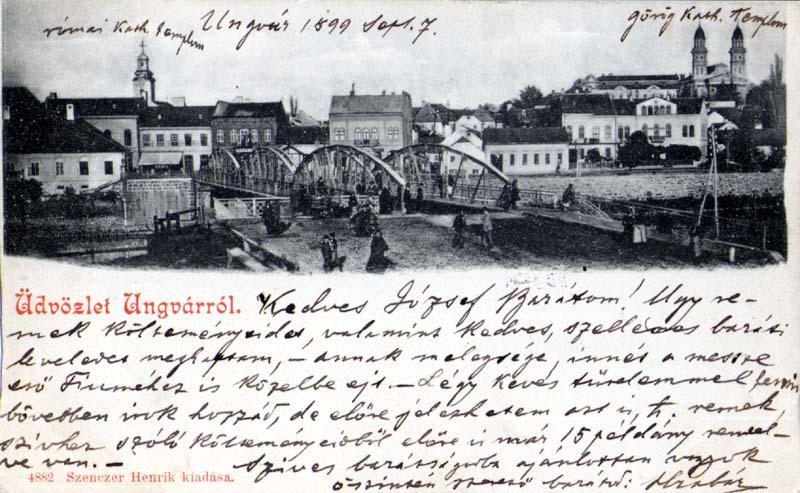 római Kath. templom
Ungvár 1899 Sept. 7.
görög Kath. Templom
Üdvözlet Ungvárról.
Kedves József Barátom! Ugy re-
mek költeményeidet, valamint kedves, szellemes baráti
leveledet megkaptam, – annak melegsége, innét a messze
eső Fiuméhez is közelbe ejt. – Légy kevés türelemmel
bővebben irok hozzád, de előre jelezhetem azt is, h. remek,
szivhez szóló költeményeidből előre is már 15 példány rendel-
ve van. –
Szives barátságodba ajánlottan vagyok
őszintén szerető barátod:
4882 Szenczer Henrik kiadása.